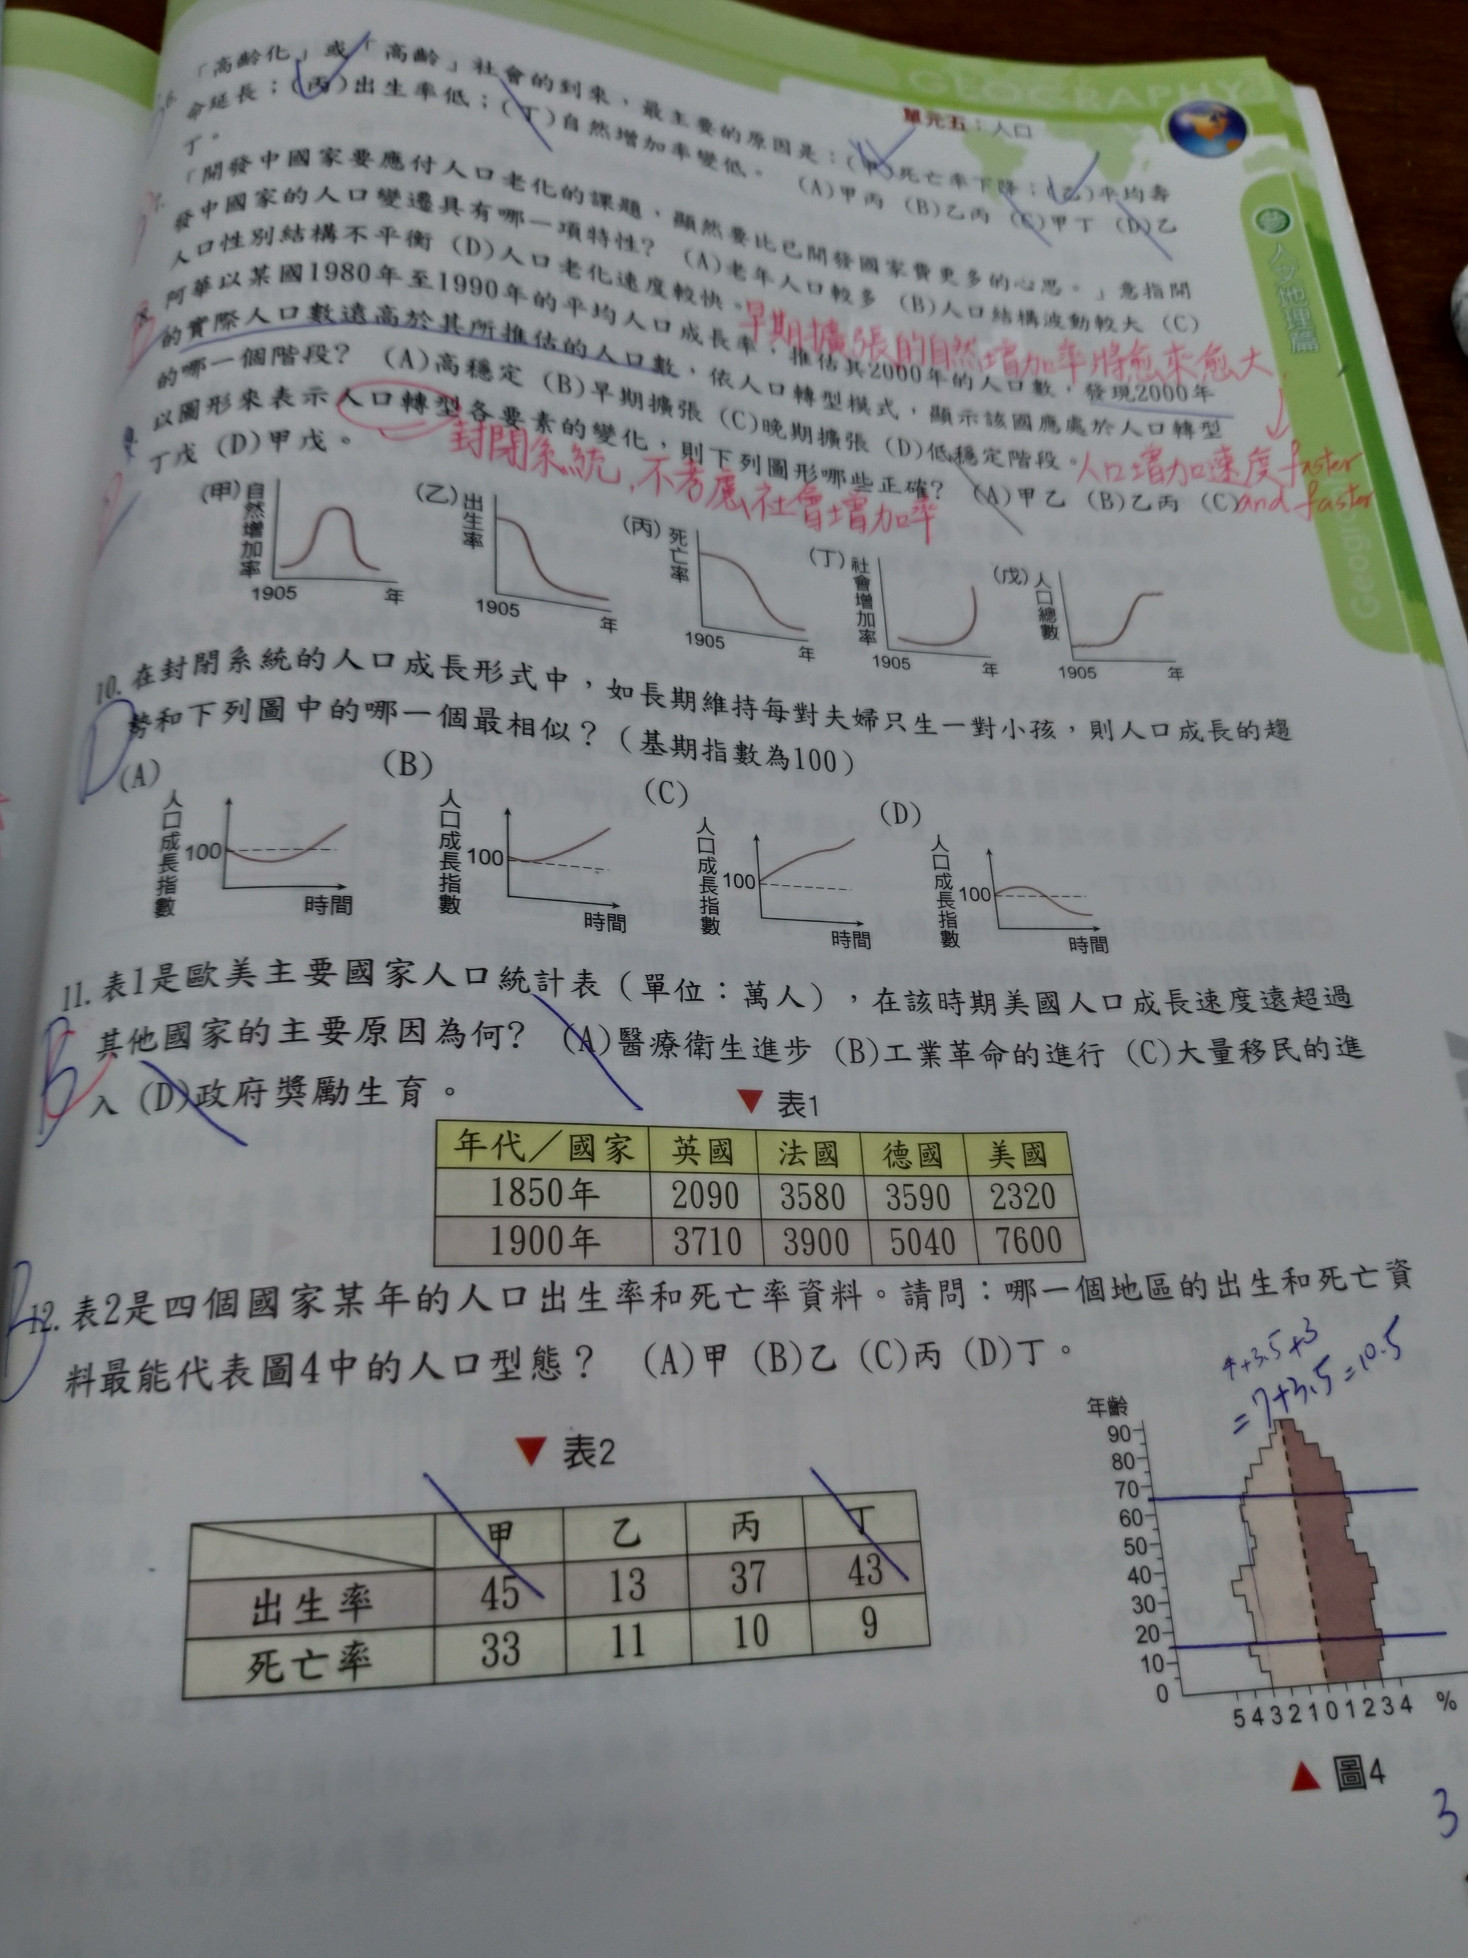 GEOGRAPHY
單元五：人口
參 人文地理篇
「高齡化」或「高齡」社會的到來，最主要的原因是：(甲)死亡率下降；(乙)平均壽
命延長；(丙)出生率低；(丁)自然增加率變低。 (A)甲丙 (B)乙丙 (C)甲丁 (D)乙
丁。
「開發中國家要應付人口老化的課題，顯然要比已開發國家費更多的心思。」意指開
發中國家的人口變遷具有哪一項特性？ (A)老年人口較多 (B)人口結構波動較大 (C)
人口性別結構不平衡 (D)人口老化速度較快。
早期擴張的自然增加率將愈來愈大
阿華以某國1980年至1990年的平均人口成長率，推估其2000年的人口數，發現2000年
的實際人口數遠高於其所推估的人口數，依人口轉型模式，顯示該國應處於人口轉型
的哪一個階段？ (A)高穩定 (B)早期擴張 (C)晚期擴張 (D)低穩定階段。
人口增加速度faster
and faster
以圖形來表示人口轉型各要素的變化，則下列圖形哪些正確？ (A)甲乙 (B)乙丙 (C)
丁戊 (D)甲戊。
封閉系統，不考慮社會增加率
(甲) 自然增加率 1905 年
(乙) 出生率 1905 年
(丙) 死亡率 1905 年
(丁) 社會增加率 1905 年
(戊) 人口總數 1905 年
10. 在封閉系統的人口成長形式中，如長期維持每對夫婦只生一對小孩，則人口成長的趨
D
勢和下列圖中的哪一個最相似？（基期指數為100）
(A) 人口成長指數 100 時間
(B) 人口成長指數 100 時間
(C) 人口成長指數 100 時間
(D) 人口成長指數 100 時間
11. 表1是歐美主要國家人口統計表（單位：萬人），在該時期美國人口成長速度遠超過
B
其他國家的主要原因為何？ (A)醫療衛生進步 (B)工業革命的進行 (C)大量移民的進
入 (D)政府獎勵生育。
▼ 表1
年代／國家 英國 法國 德國 美國
1850年 2090 3580 3590 2320
1900年 3710 3900 5040 7600
B
12. 表2是四個國家某年的人口出生率和死亡率資料。請問：哪一個地區的出生和死亡資
料最能代表圖4中的人口型態？ (A)甲 (B)乙 (C)丙 (D)丁。
4+3.5+3
=7+3.5=10.5
▼ 表2
甲 乙 丙 丁
出生率 45 13 37 43
死亡率 33 11 10 9
年齡
90
80
70
60
50
40
30
20
10
0
5 4 3 2 1 0 1 2 3 4 %
▲ 圖4
3